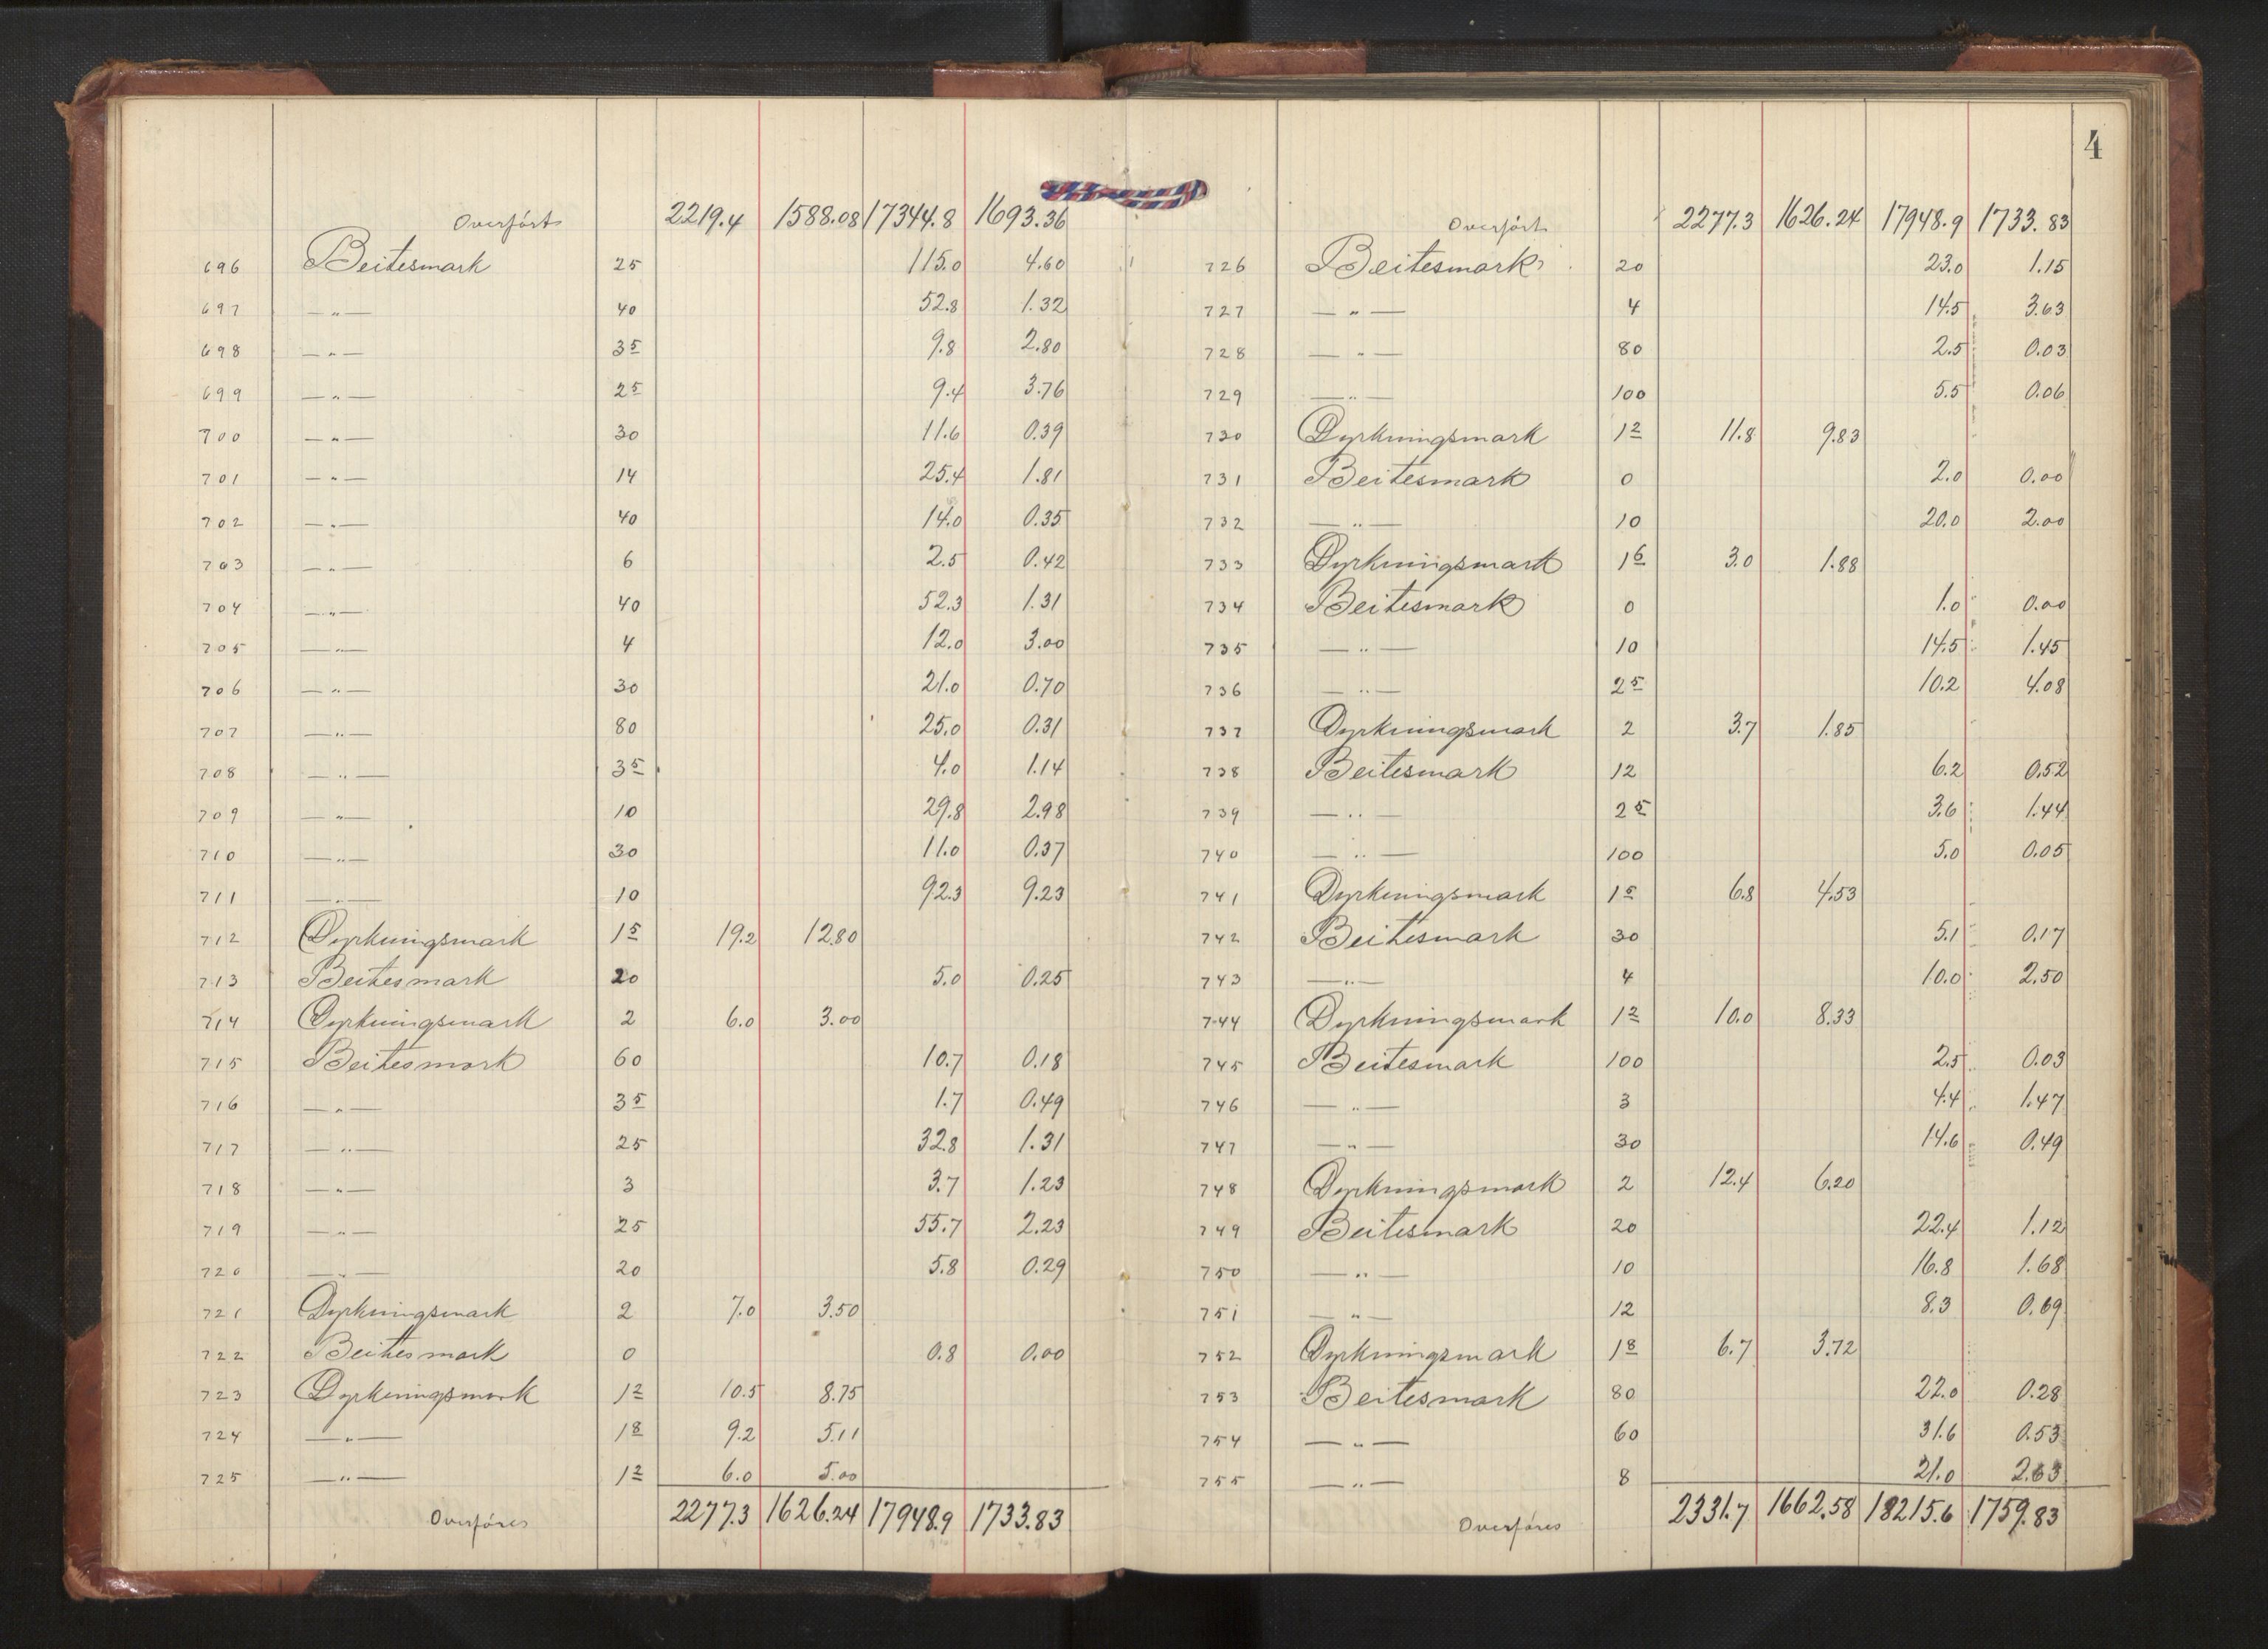 Overført 2219.4 1588.08 17344.8 1693.36
696 Beitesmark 25 115.0 4.60
697 —"— 40 52.8 1.32
698 —"— 3 5 9.8 2.80
699 —"— 2 5 9.4 3.76
700 —"— 30 11.6 0.39
701 —"— 14 25.4 1.81
702 —"— 40 14.0 0.35
703 —"— 6 2.5 0.42
704 —"— 40 52.3 1.31
705 —"— 4 12.0 3.00
706 —"— 30 21.0 0.70
707 —"— 80 25.0 0.31
708 —"— 3 5 4.0 1.14
709 —"— 10 29.8 2.98
710 —"— 30 11.0 0.37
711 —"— 10 92.3 9.23
712 Dyrkningsmark 1 5 19.2 12.80
713 Beitesmark 20 5.0 0.25
714 Dyrkningsmark 2 6.0 3.00
715 Beitesmark 60 10.7 0.18
716 —"— 3 5 1.7 0.49
717 —"— 25 32.8 1.31
718 —"— 3 3.7 1.23
719 —"— 25 55.7 2.23
720 —"— 20 5.8 0.29
721 Dyrkningsmark 2 7.0 3.50
722 Beitesmark 0 0.8 0.00
723 Dyrkningsmark 1 2 10.5 8.75
724 —"— 1 8 9.2 5.11
725 —"— 1 2 6.0 5.00
Overføres 2277.3 1626.24 17948.9 1733.83
4
Overført 2277.3 1626.24 17948.9 1733.83
726 Beitesmark 20 23.0 1.15
727 —"— 4 14.5 3.63
728 —"— 80 2.5 0.03
729 —"— 100 5.5 0.06
730 Dyrkningsmark 1 2 11.8 9.83
731 Beitesmark 0 2.0 0.00
732 —"— 10 20.0 2.00
733 Dyrkningsmark 1 6 3.0 1.88
734 Beitesmark 0 1.0 0.00
735 —"— 10 14.5 1.45
736 —"— 2 5 10.2 4.08
737 Dyrkningsmark 2 3.7 1.85
738 Beitesmark 12 6.2 0.52
739 —"— 2 5 3.6 1.44
740 —"— 100 5.0 0.05
741 Dyrkningsmark 1 5 6.8 4.53
742 Beitesmark 30 5.1 0.17
743 —"— 4 10.0 2.50
744 Dyrkningsmark 1 2 10.0 8.33
745 Beitesmark 100 2.5 0.03
746 —"— 3 4.4 1.47
747 —"— 30 14.6 0.49
748 Dyrkningsmark 2 12.4 6.20
749 Beitesmark 20 22.4 1.12
750 —"— 10 16.8 1.68
751 —"— 12 8.3 0.69
752 Dyrkningsmark 1 8 6.7 3.72
753 Beitesmark 80 22.0 0.28
754 —"— 60 31.6 0.53
755 —"— 8 21.0 2.63
Overføres 2331.7 1662.58 18215.6 1759.83